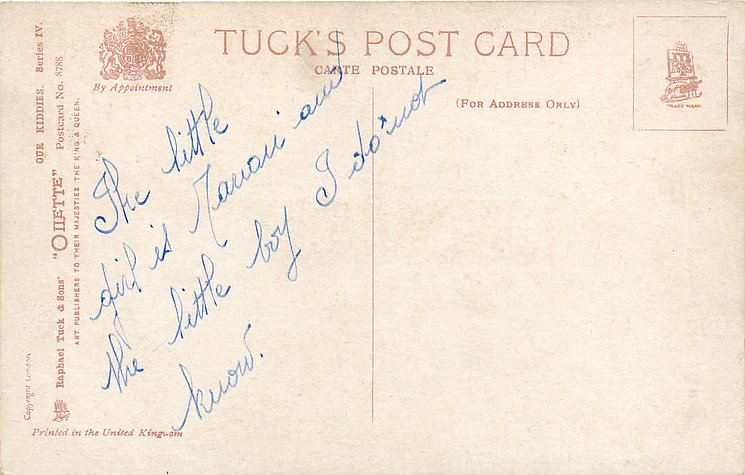 TUCK'S POST CARD
CARTE POSTALE
(FOR ADDRESS ONLY)
By Appointment
TRADE MARK
OUR KIDDIES. Series IV.
Postcard No. 8788
"OILETTE"
Raphael Tuck & Sons'
ART PUBLISHERS TO THEIR MAJESTIES THE KING & QUEEN.
Copyright London
Printed in the United Kingdom
The little
girl is and
the little boy I do not
know.